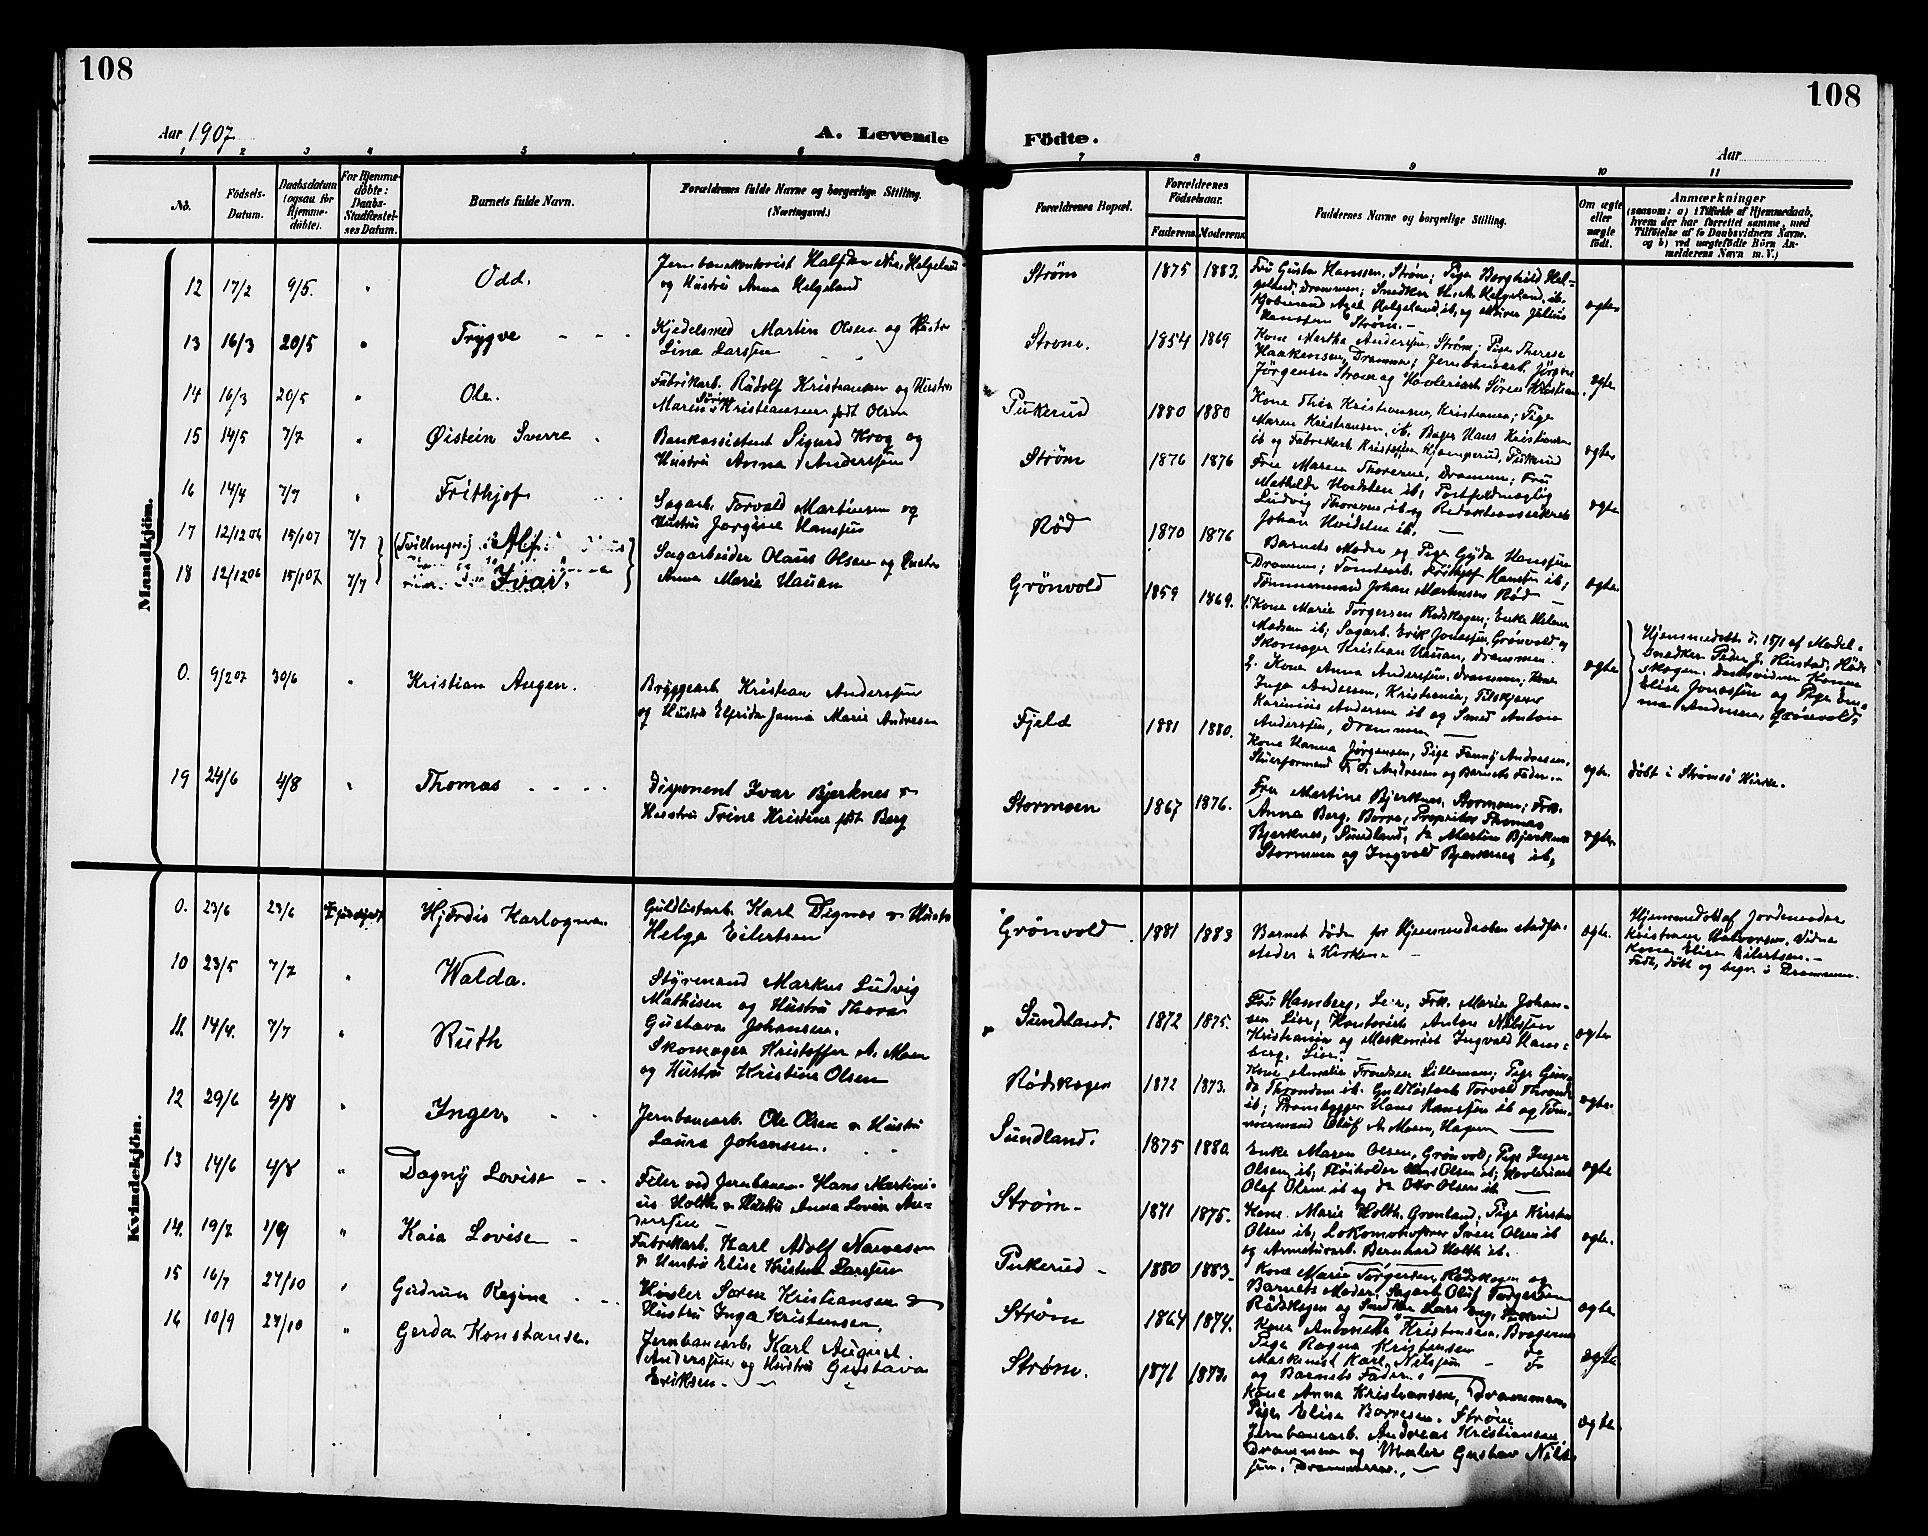 108
108
Aar 1907
A. Levende
Födte.
Aar
1
2
3
4
5
6
7
8
9
10
11
No.
Födsels-
Datum.
Daabsdatum
(ogsaa for
Hjemme-
döbte).
For Hjemme-
döbte:
Daabs-
Stadfæstel-
ses Datum.
Barnets fulde Navn.
Forældrenes fulde Navne og borgerlige Stilling.
(Næringsvei.)
Forældrenes Bopæl.
Forældrenes
Födselsaar.
Faderens
Moderens
Faddernes Navne og borgerlige Stilling.
Om ægte
eller
uægte
födt.
Anmærkninger
(saasom: a) i Tilfælde af Hjemmedaab,
hvem der har forrettet samme, med
Tilföielse af to Daabsvidners Navne,
og b) ved uægtefödte Börn An-
melderens Navn m. V.)
Mandkjön.
12 17/2 9/5. " Odd.
Jernbanekontorist Halfdan Helgeland
og Hustru Anna Helgeland
Strøm 1875 1883.
Fru Gusta Hanssen, Strøm; Pige Borghild Hel-
geland, Drammen; Snedker Helgeland, ib.
Kjøbmand Axel Helgeland, ib, og Julius
Hanssen Strøm. -
ægte
13 16/3 20/5 " Trygve
Kjedelsmed Martin Olsen og Hustru
Lina Larssen
Strøm. 1854 1869
Kone Martha Anderssen, Strøm; Pige Therese
Haakensen, Drammen; Jernbanearb. Jörgen
Jörgensen Strøm og Høvleriarb. Sören Kristian
ægte
14 16/3 20/5 " Ole.
Fabrikarb. Rudolf Kristiansen og Hustru
Marie Kristiansen født Olsen
Pukerud 1880 1880
Kone Thea Kristiansen, Kristiania; Pige
Maren Kristiansen, ib. Bager Hans Kristiansen
ib og Fabrikarb. Kristoffer Kjemperud, Pukerud
ægte
15 14/5 7/7 " Øistein Sverre
Bankassistent Sigurd Krog og
Hustru Anna Anderssen
Strøm 1876 1876
Fru Maren Thoresen, Drammen; Fru
Mathilde ib; Postfuldmægtig
Ludvig Thoresen ib og Redaktionssekretær
Johan Hvidsten ib.
ægte
16 14/4 7/7 " Frithjof
Sagarb. Torvald Martinsen og
Hustru Jørgine Hanssen
Rød 1870 1876
Barnets Moder og Pige Gyda Hanssen
Drammen; Tomtearb. Frithjof Hanssen ib;
Tømmermand Johan Martinsen Rød
ægte
17 12/12 06 15/1 07 7/7 (Tvillinger.) Alf
18 12/12 06 15/1 07 7/7 Ivar.
Sagarbeider Olaus Olsen og Hustru
Anna Marie Hauan
Grønvold 1859 1869.
Kone Marie Torgersen Rødskogen; Enke Helene
Madsen ib; Sagarb. Erik Jonassen, Grønvold og
Skomager Kristian Hauan, Drammen.
ægte
Hjemmedøbt d. 15/1 af Model-
snedker Peder J. Hustad, Rød-
skogen. Daabsvidner Kone
Elise Jonassen og Pige Em-
ma Andersen, Grønvold.
0. 9/2 07 30/6 " Kristian Augen.
Bryggearb Kristian Anderssen
og Hustru Elfrida Janna Marie Andresen
Fjeld 1881 1880.
Kone Anna Anderssen, Drammen; Kone
Inga Andersen, Kristiania;
Karinius Andersen ib og Smed Anton
Anderssen, Drammen
Kone Hanna Jørgensen, Pige Fanny Andresen,
Stuerformand Andresen og Barnets Fader.
ægte.
Døbt i Strømsø Kirke.
19 24/6 4/8 " Thomas
Disponent Ivar Bjerknes &
Hustru Trine Kristine født Berg
Stormoen 1867 1876.
Fru Martine Bjerknes, Stormoen; Frk.
Anna Berg, Borre; Proprietær Thomas
Bjerknes, Sundland, do Martin Bjerknes
Stormoen og Ingvald Bjerknes ib.
ægte
Kvindekjön.
0. 23/6 23/6 Hjørdis Karlogna
Guldlistarb. Karl Dignæs & Hustru
Helga Eilertsen
Grönvold 1881 1883
Barnet døde før Hjemmedaaben stadfæ-
stedes i Kirken
ægte.
Hjemmedøbt af Jordemoder
Kristiane Halvorsen. Vidne
Kone Elise Eilertsen. -
Født, døbt og begr. i Drammen.
10 23/5 7/7 " Walda.
Styrmand Markus Ludvig
Mathisen og Hustru Thora
Gustava Johansen.
Sundland. 1872 1875.
Fru Hamberg, Lier; Frk. Marie Johan-
sen Lier; Kontorist Anton Nilssen
Kristiania og Maskinist Ingvald Ham-
berg, Lier.
ægte
11. 14/4. 7/7 " Ruth
Skomager Kristoffer A. Moen
og Hustru Kristine Olsen
Rødskogen 1872 1873.
Kone Amalie Frandsen Lilleman; Pige Gun-
da Throndsen ib. Guldlistarb Torvald Thronds
ib; Prambygger Hans Hanssen ib og Tøm-
mermand Oluf A. Moen, Hagen
ægte.
12 29/6 4/8 " Inger.
Jernbanearb. Ole Olsen & Hustru
Laura Johansen.
Sundland. 1875 1880.
Enke Maren Olsen, Grønvold; Pige Inger
Olsen, ib; Olsen ib; Høvleriarb
Olaf Olsen ib og do Otto Olsen ib
ægte
13 14/6 4/8 " Dagny Lovise
Filer ved Jernbanen Hans Martini-
us Holth & Hustru Anna Lovise An-
derssen
Strøm 1871 1875.
Kone Marie Holth, Grønland; Pige Kirsten
Olsen ib; Lokomotivfører Sven Olsen ib
og Armaturarb. Bernhard Holth ib.
ægte.
14. 19/7 1/9 " Kaia Lovise
Fabrikarb. Karl Adolf Næresen
& Hustru Elise Kristine Larssen
Pukerud 1880 1883.
Kone Marie Torgersen, Rødskogen og
Barnets Moder, Sagarb Oluf Torgersen
Rødskogen og Snedker Lars Eng, Pukerud
ægte
15 16/7 27/10 " Gudrun Regine
Høvler Søren Kristiansen &
Hustru Inga Kristensen.
Strøm 1864 1874.
Kone Kristensen, Bragernes
Pige Ragna Kristensen do
Maskinist Karl Nilssen do
og Barnets Fader.
ægte
16 10/9 27/10 " Gerda Konstanse.
Jernbanearb. Karl August
Anderssen og Hustru Gustava
Eriksen.
Strøm. 1871 1873.
Kone Anna Kristiansen, Drammen,
Pige Elise Borresen, Strøm
Jernbanearb. Andreas Kristiansen
Drammen og Maler Gustav Nils-
sen, Drammen.
ægte.